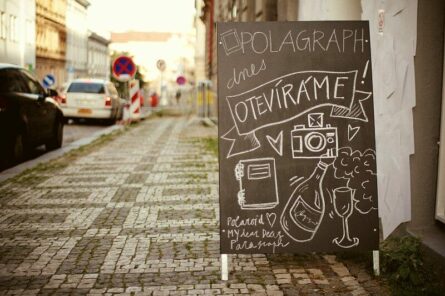 POLAGRAPH
dnes
OTEVÍRÁME!
Polaroid
My dear Dear
Paragraph